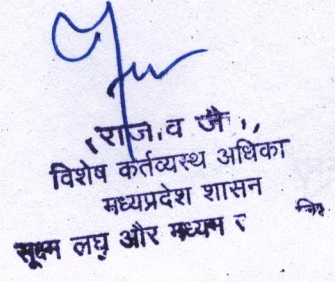 (राजीव जै
विशेष कर्तव्यस्थ अधिका
मध्यप्रदेश शासन
सूक्ष्म लघु और मध्यम